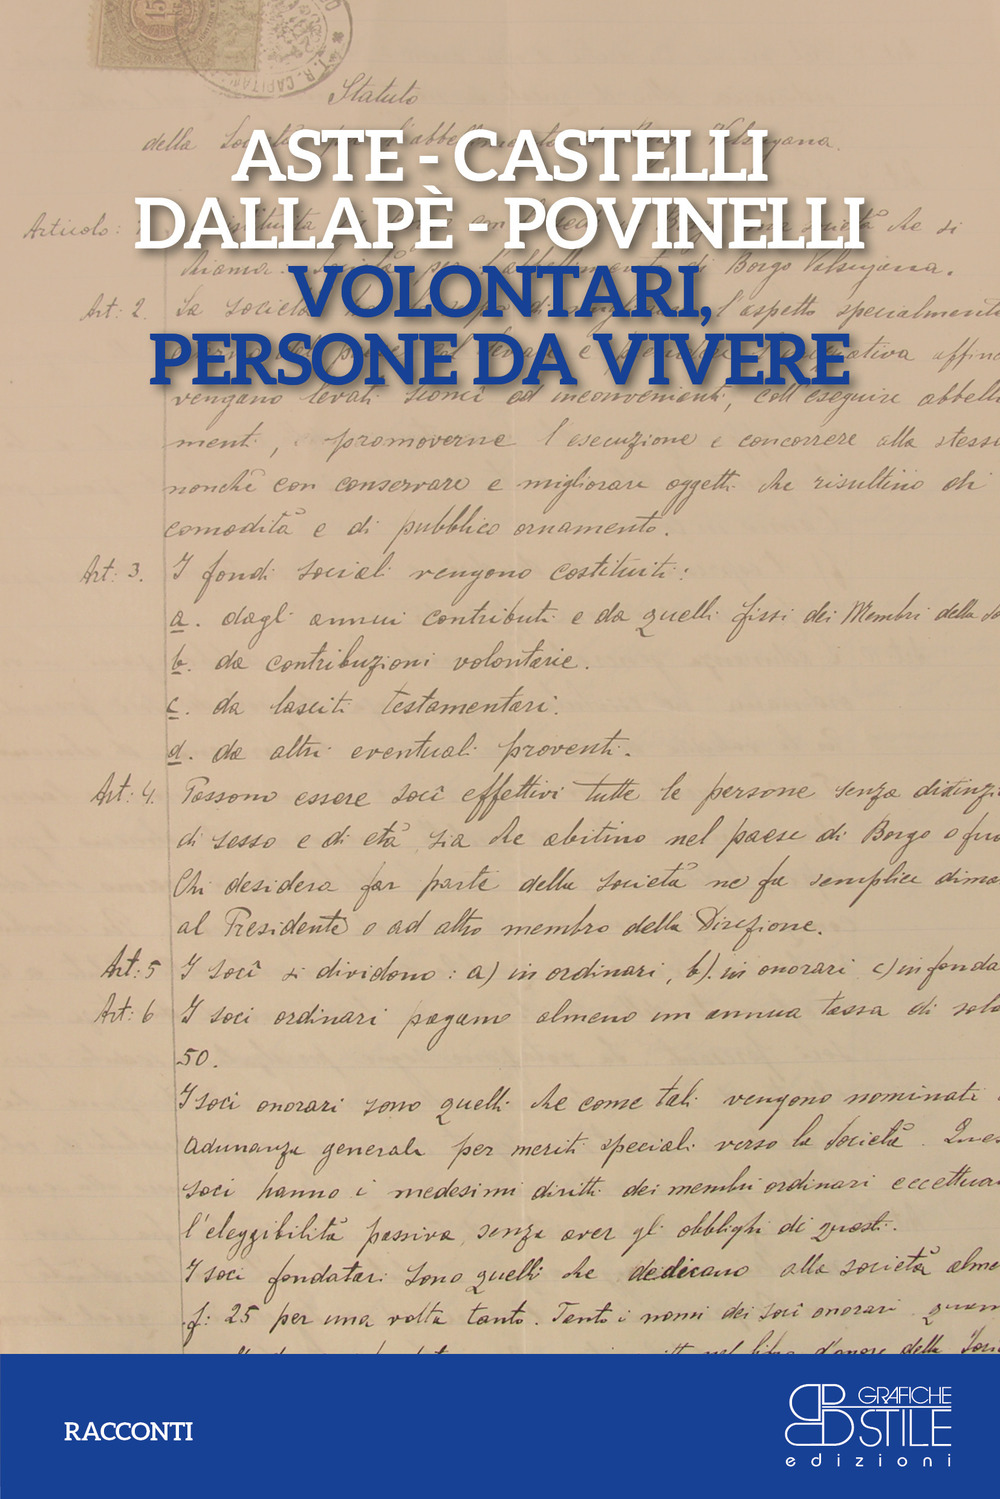 15
I. R. CAPITAN
Statuto
della Società per l'abbe Borgo Valsugana.
ASTE - CASTELLI
DALLAPÈ - POVINELLI
VOLONTARI,
PERSONE DA VIVERE
Articolo: 1 società che si
chiama: Società per l'abbellimento di Borgo Valsugana.
Art: 2. La società l'aspetto specialmente
affin
vengano levati sconci ed inconvenienti, coll'eseguire abbelli
menti, promoverne l'esecuzione e concorrere alla stessa
nonchè con conservare e migliorare oggetti che risultino di
comodità e di pubblico ornamento.
Art: 3. I fondi sociali vengono costituiti:
a. dagl' annui contributi e da quelli fissi dei Membri della So
b. da contribuzioni volontarie.
c. da lasciti testamentari.
d. da altri eventuali proventi.
Art: 4. Possono essere soci effettivi tutte le persone senza distinzi
di sesso e di età sia che abitino nel paese di Borgo o fuo
Chi desidera far parte della società ne fa semplice diman
al Presidente o ad altro membro della Direzione.
Art: 5 I soci si dividono: a) in ordinari, b). in onorari c) in fonda
Art: 6 I soci ordinari pagano almeno un annua tassa di sol
50.
I soci onorari sono quelli che come tali vengono nominati
Adunanza generale per meriti speciali verso la Società. Ques
soci hanno i medesimi diritti dei membri ordinari eccettua
l'eleggibilità passiva, senza aver gli obblighi di questi.
I soci fondatori sono quelli che dedicano alla società alme
f: 25 per una volta tanto. Tanto i nomi dei soci onorari quan
nel libro d'onore della Soci
RACCONTI
GRAFICHE
STILE
edizioni